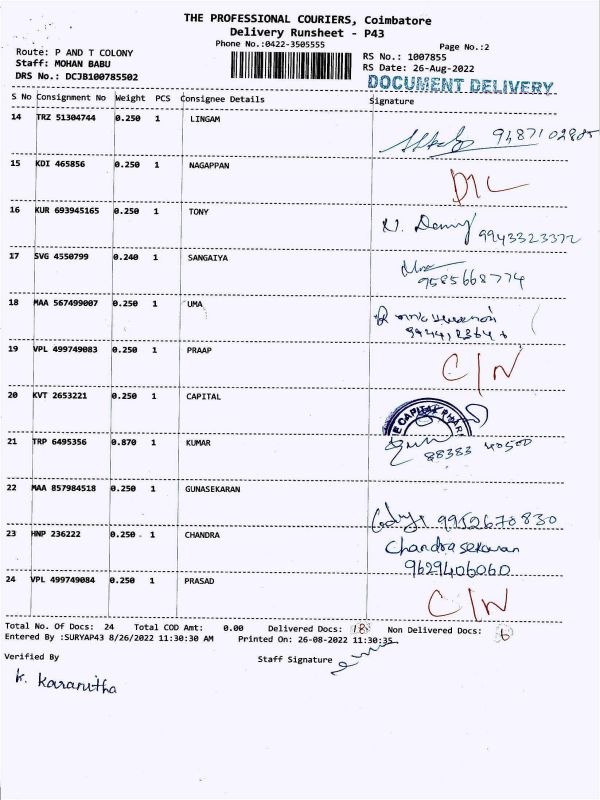 THE PROFESSIONAL COURIERS, Coimbatore
Delivery Runsheet - P43
Phone No.:0422-3505555 Page No.:2
Route: P AND T COLONY RS No.: 1007855
Staff: MOHAN BABU RS Date: 26-Aug-2022
DRS No.: DCJB100785502 DOCUMENT DELIVERY
S No Consignment No Weight PCS Consignee Details Signature
14 TRZ 51304744 0.250 1 LINGAM
15 KDI 465856 0.250 1 NAGAPPAN
16 KUR 693945165 0.250 1 TONY
9943323372
17 SVG 4550799 0.240 1 SANGAIYA
9585668774
18 MAA 567499007 0.250 1 UMA
19 VPL 499749083 0.250 1 PRAAP
C/N
20 KVT 2653221 0.250 1 CAPITAL
E CAPITAL PHAR
21 TRP 6495356 0.870 1 KUMAR
88383 40500
22 MAA 857984518 0.250 1 GUNASEKARAN
9952670830
23 HNP 236222 0.250 1 CHANDRA
Chandrasekaran
9629406060
24 VPL 499749084 0.250 1 PRASAD
C/N
Total No. Of Docs: 24 Total COD Amt: 0.00 Delivered Docs: 18 Non Delivered Docs: 6
Entered By :SURYAP43 8/26/2022 11:30:30 AM Printed On: 26-08-2022 11:30:35
Verified By Staff Signature
K. Karanitha